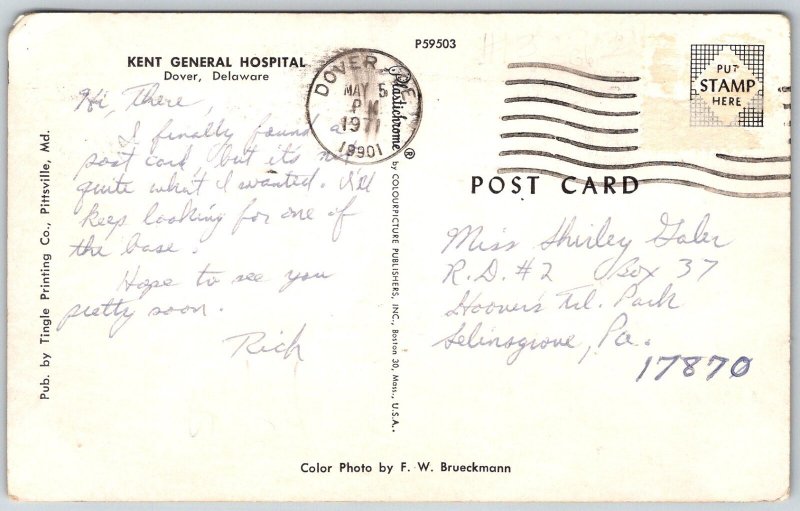 P59503
KENT GENERAL HOSPITAL
Dover, Delaware
DOVER, DE
MAY 5
PM
1971
19901
PUT
STAMP
HERE
Hi, There,
I finally found a
post card but it's not
quite what I wanted. I'll
keep looking for one of
the base.
Hope to see you
pretty soon.
Rich
Pub. by Tingle Printing Co., Pittsville, Md.
Plastichrome® by COLOURPICTURE PUBLISHERS, INC., Boston 30, Mass., U.S.A.
POST CARD
Miss Shirley
R.D. #2 Box 37
Hoover's Trl. Park
Selinsgrove, Pa.
17870
Color Photo by F. W. Brueckmann